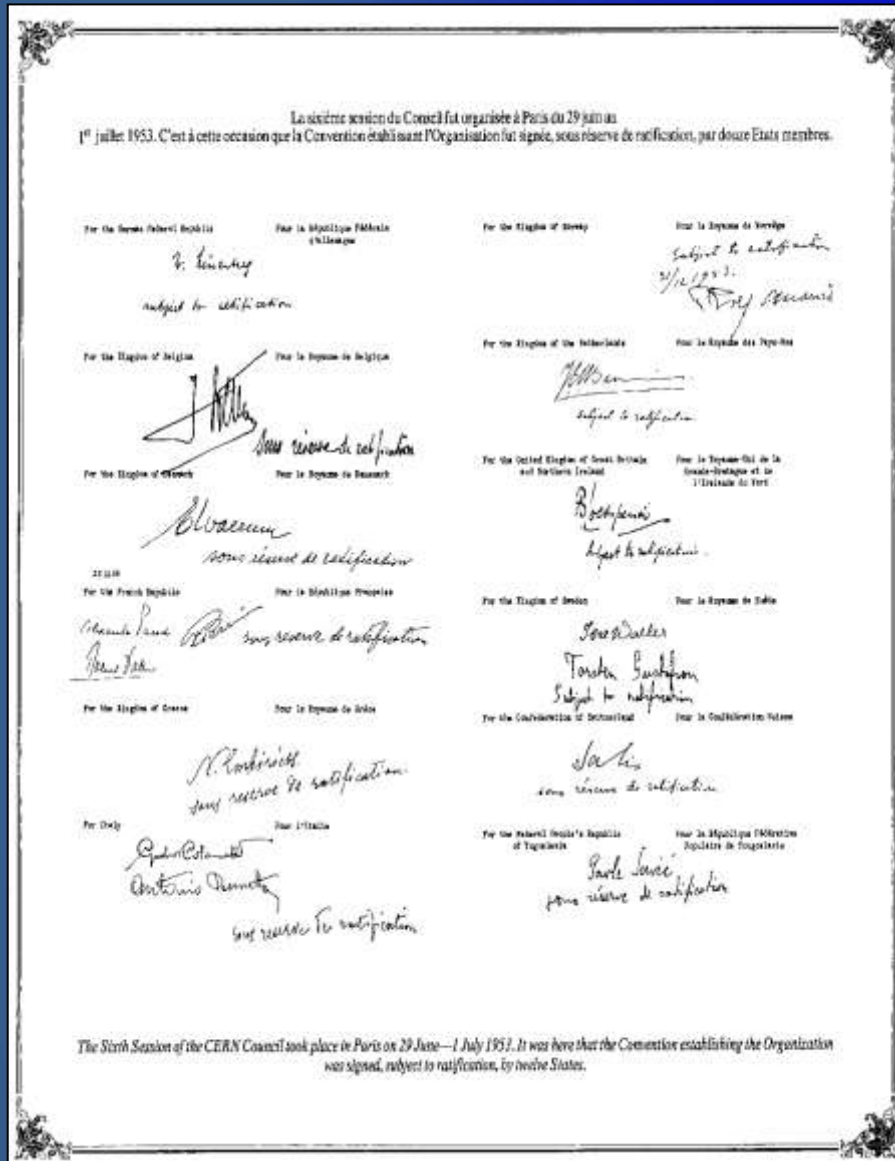 La sixième session du Conseil fut organisée à Paris du 29 juin au
1er juillet 1953. C'est à cette occasion que la Convention établissant l'Organisation fut signée, sous réserve de ratification, par douze Etats membres.
For the German Federal Republic
Pour la République Fédérale
d'Allemagne
subject to ratification
For the Kingdom of Belgium
Pour le Royaume de Belgique
sous réserve de ratification
For the Kingdom of Denmark
Pour le Royaume de Danemark
sous réserve de ratification
For the French Republic
Pour la République Française
sous reserve de ratification
For the Kingdom of Greece
Pour le Royaume de Grèce
sous reserve de ratification.
For Italy
Pour l'Italie
Antonio
sous reserve de ratification
For the Kingdom of Norway
Pour le Royaume de Norvège
Subject to ratification
31/12 1953.
For the Kingdom of the Netherlands
Pour le Royaume des Pays-Bas
subject to ratification
For the United Kingdom of Great Britain
and Northern Ireland
Pour le Royaume-Uni de la
Grande-Bretagne et de
l'Irlande du Nord
subject to ratification.
For the Kingdom of Sweden
Pour le Royaume de Suède
Waller
Torsten Gustafson
Subject to ratification
For the Confederation of Switzerland
Pour la Confédération Suisse
sous réserve de ratification
For the Federal People's Republic
of Yugoslavia
Pour la République Fédérative
Populaire de Yougoslavie
Pavle Savić
sous réserve de ratification
The Sixth Session of the CERN Council took place in Paris on 29 June—1 July 1953. It was here that the Convention establishing the Organization
was signed, subject to ratification, by twelve States.